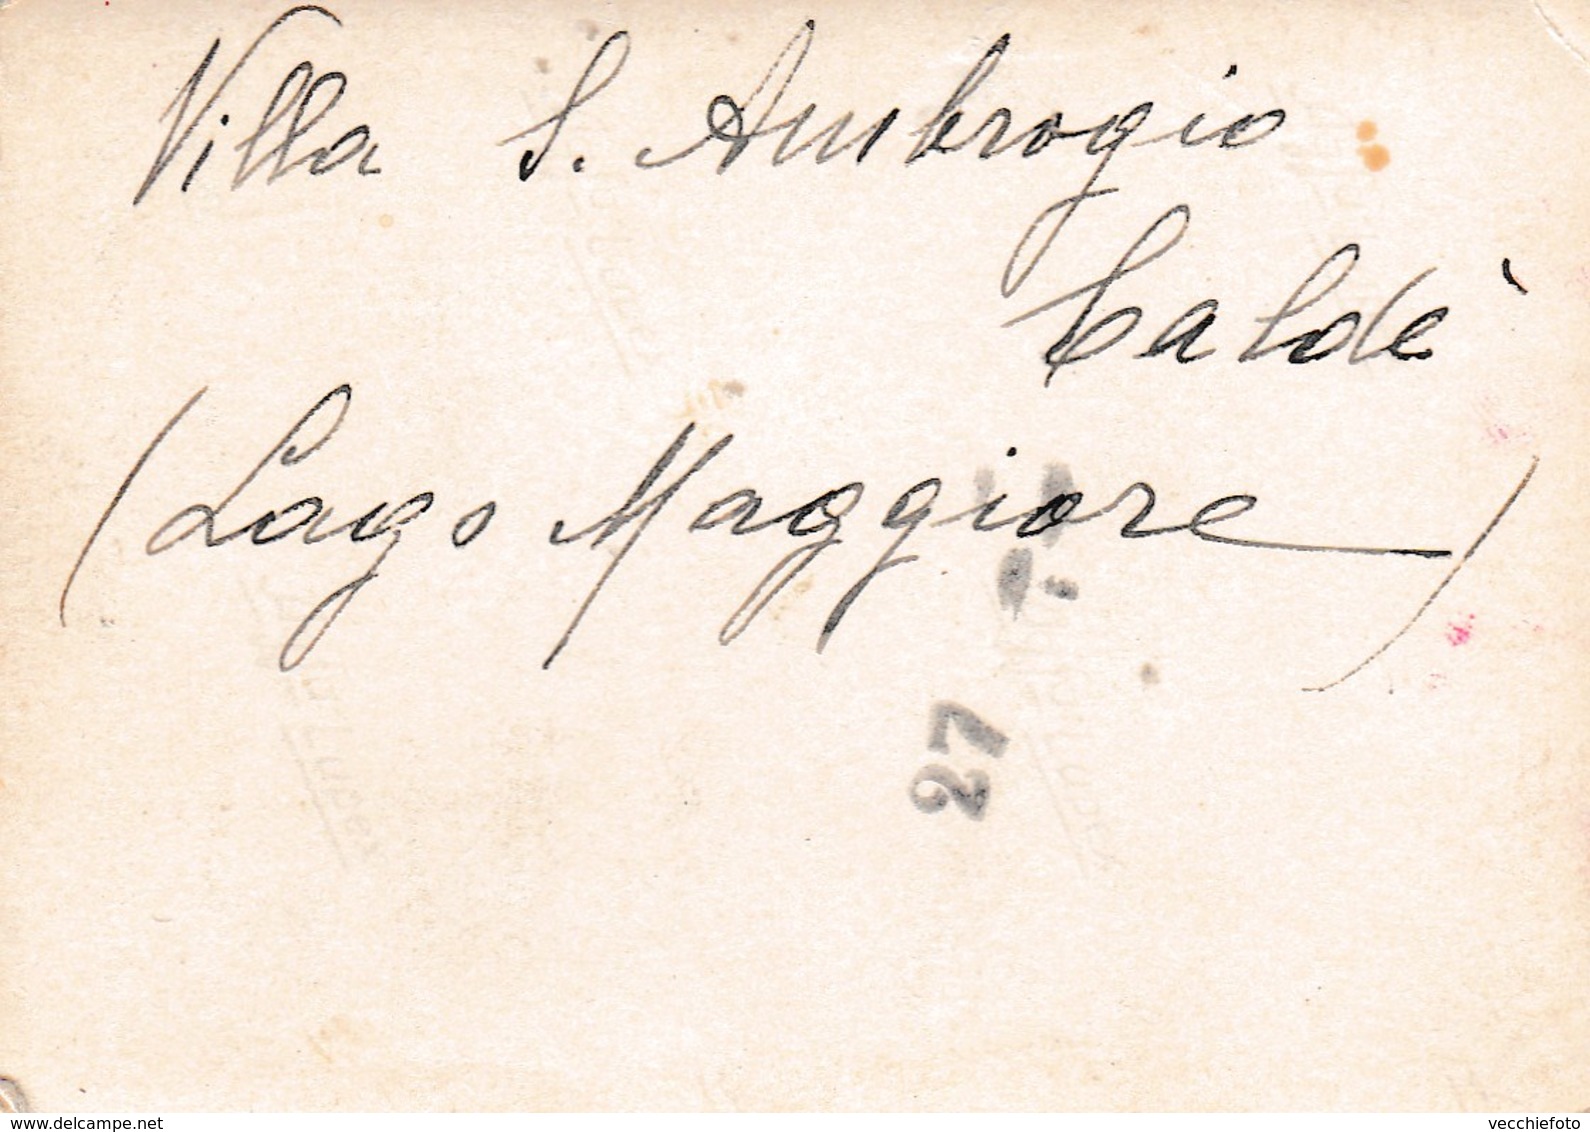 Villa S. Ambrogio
Caldè
(Lago Maggiore)
27
www.delcampe.net
vecchiefoto